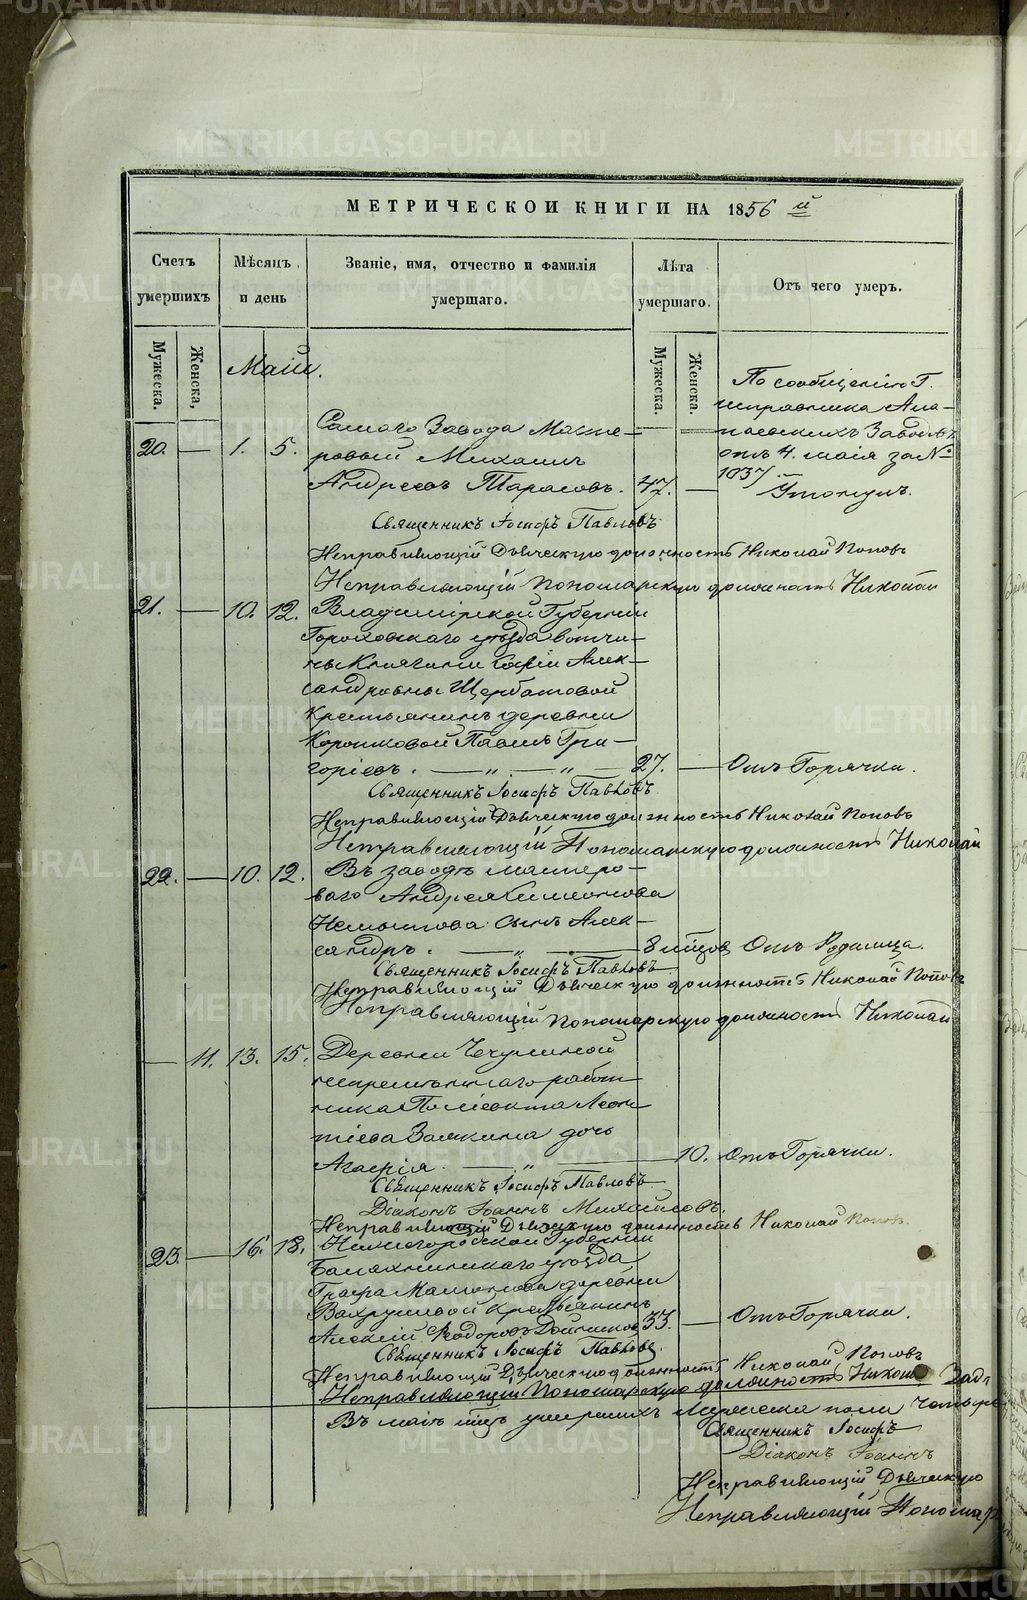 МЕТРИЧЕСКОЙ КНИГИ НА 1856 й
Счетъ умершихъ
Мѣсяцъ и день
Званіе, имя, отчество и фамилія умершаго.
Лѣта умершаго.
Отъ чего умеръ.
Мужеска.
Женска,
Мужеска.
Женска.
Маій.
По сообщенію Г.
исправника Ала-
паевскихъ Заводовъ
отъ 4. маія за №
1037
Утонулъ.
20. — 1. 5. Самаго Завода Масте-
ровый Михаилъ
Андреевъ Тарасовъ. 47. —
Священникъ Іосифъ Павловъ
Исправляющій Дьяческую должность Николай Поповъ
Исправляющій Пономарскую должность Николай
21. — 10. 12. Владимірской Губерніи
Гороховскаго уѣзда вотчи-
ны Княгини Софіи Алек-
сандровны Щербатовой
Крестьянинъ деревни
Коротковой Павелъ Гри-
горіевъ. — „ — „ — 27. — Отъ Горячки.
Священникъ Іосифъ Павловъ
Исправляющій Дьяческую должность Николай Поповъ
Исправляющій Пономарскую должность Николай
22. — 10. 12. Въ заводѣ мастеро-
ваго Андрея Симеонова
Немытова сынъ Алек-
сандръ. — „ — 8 мѣцов Отъ Родимца.
Священникъ Іосифъ Павловъ
Исправляющій Дьяческую должность Николай Поповъ
Исправляющій Пономарскую должность Николай
— 11. 13. 15. Деревни
непремѣннаго работ-
ника Поліевкта Леон-
тіева Заякина дочь
Агафія. — „ — 10. Отъ Горячки.
Священникъ Іосифъ Павловъ
Діаконъ Іоаннъ Михайловъ.
Исправляющій Дьяческую должность Николай Поповъ
23. — 16. 18. Нижегородской Губерніи
Балахнинскаго уѣзда
Графа деревни
Вахрушевой Крестьянинъ
Алексій Ѳеодоровъ 33. — Отъ Горячки.
Священникъ Іосифъ Павловъ.
Исправляющій Дьяческую должность Николай Поповъ
Исправляющій Пономарскую должность Никола
Въ маіѣ мцѣ умершихъ Мужеска пола Четыре
Священникъ Іосифъ
Діаконъ Іоаннъ
Исправляющій Дьяческую
Исправляющій Пономар
METRIKI.GASO-URAL.RU